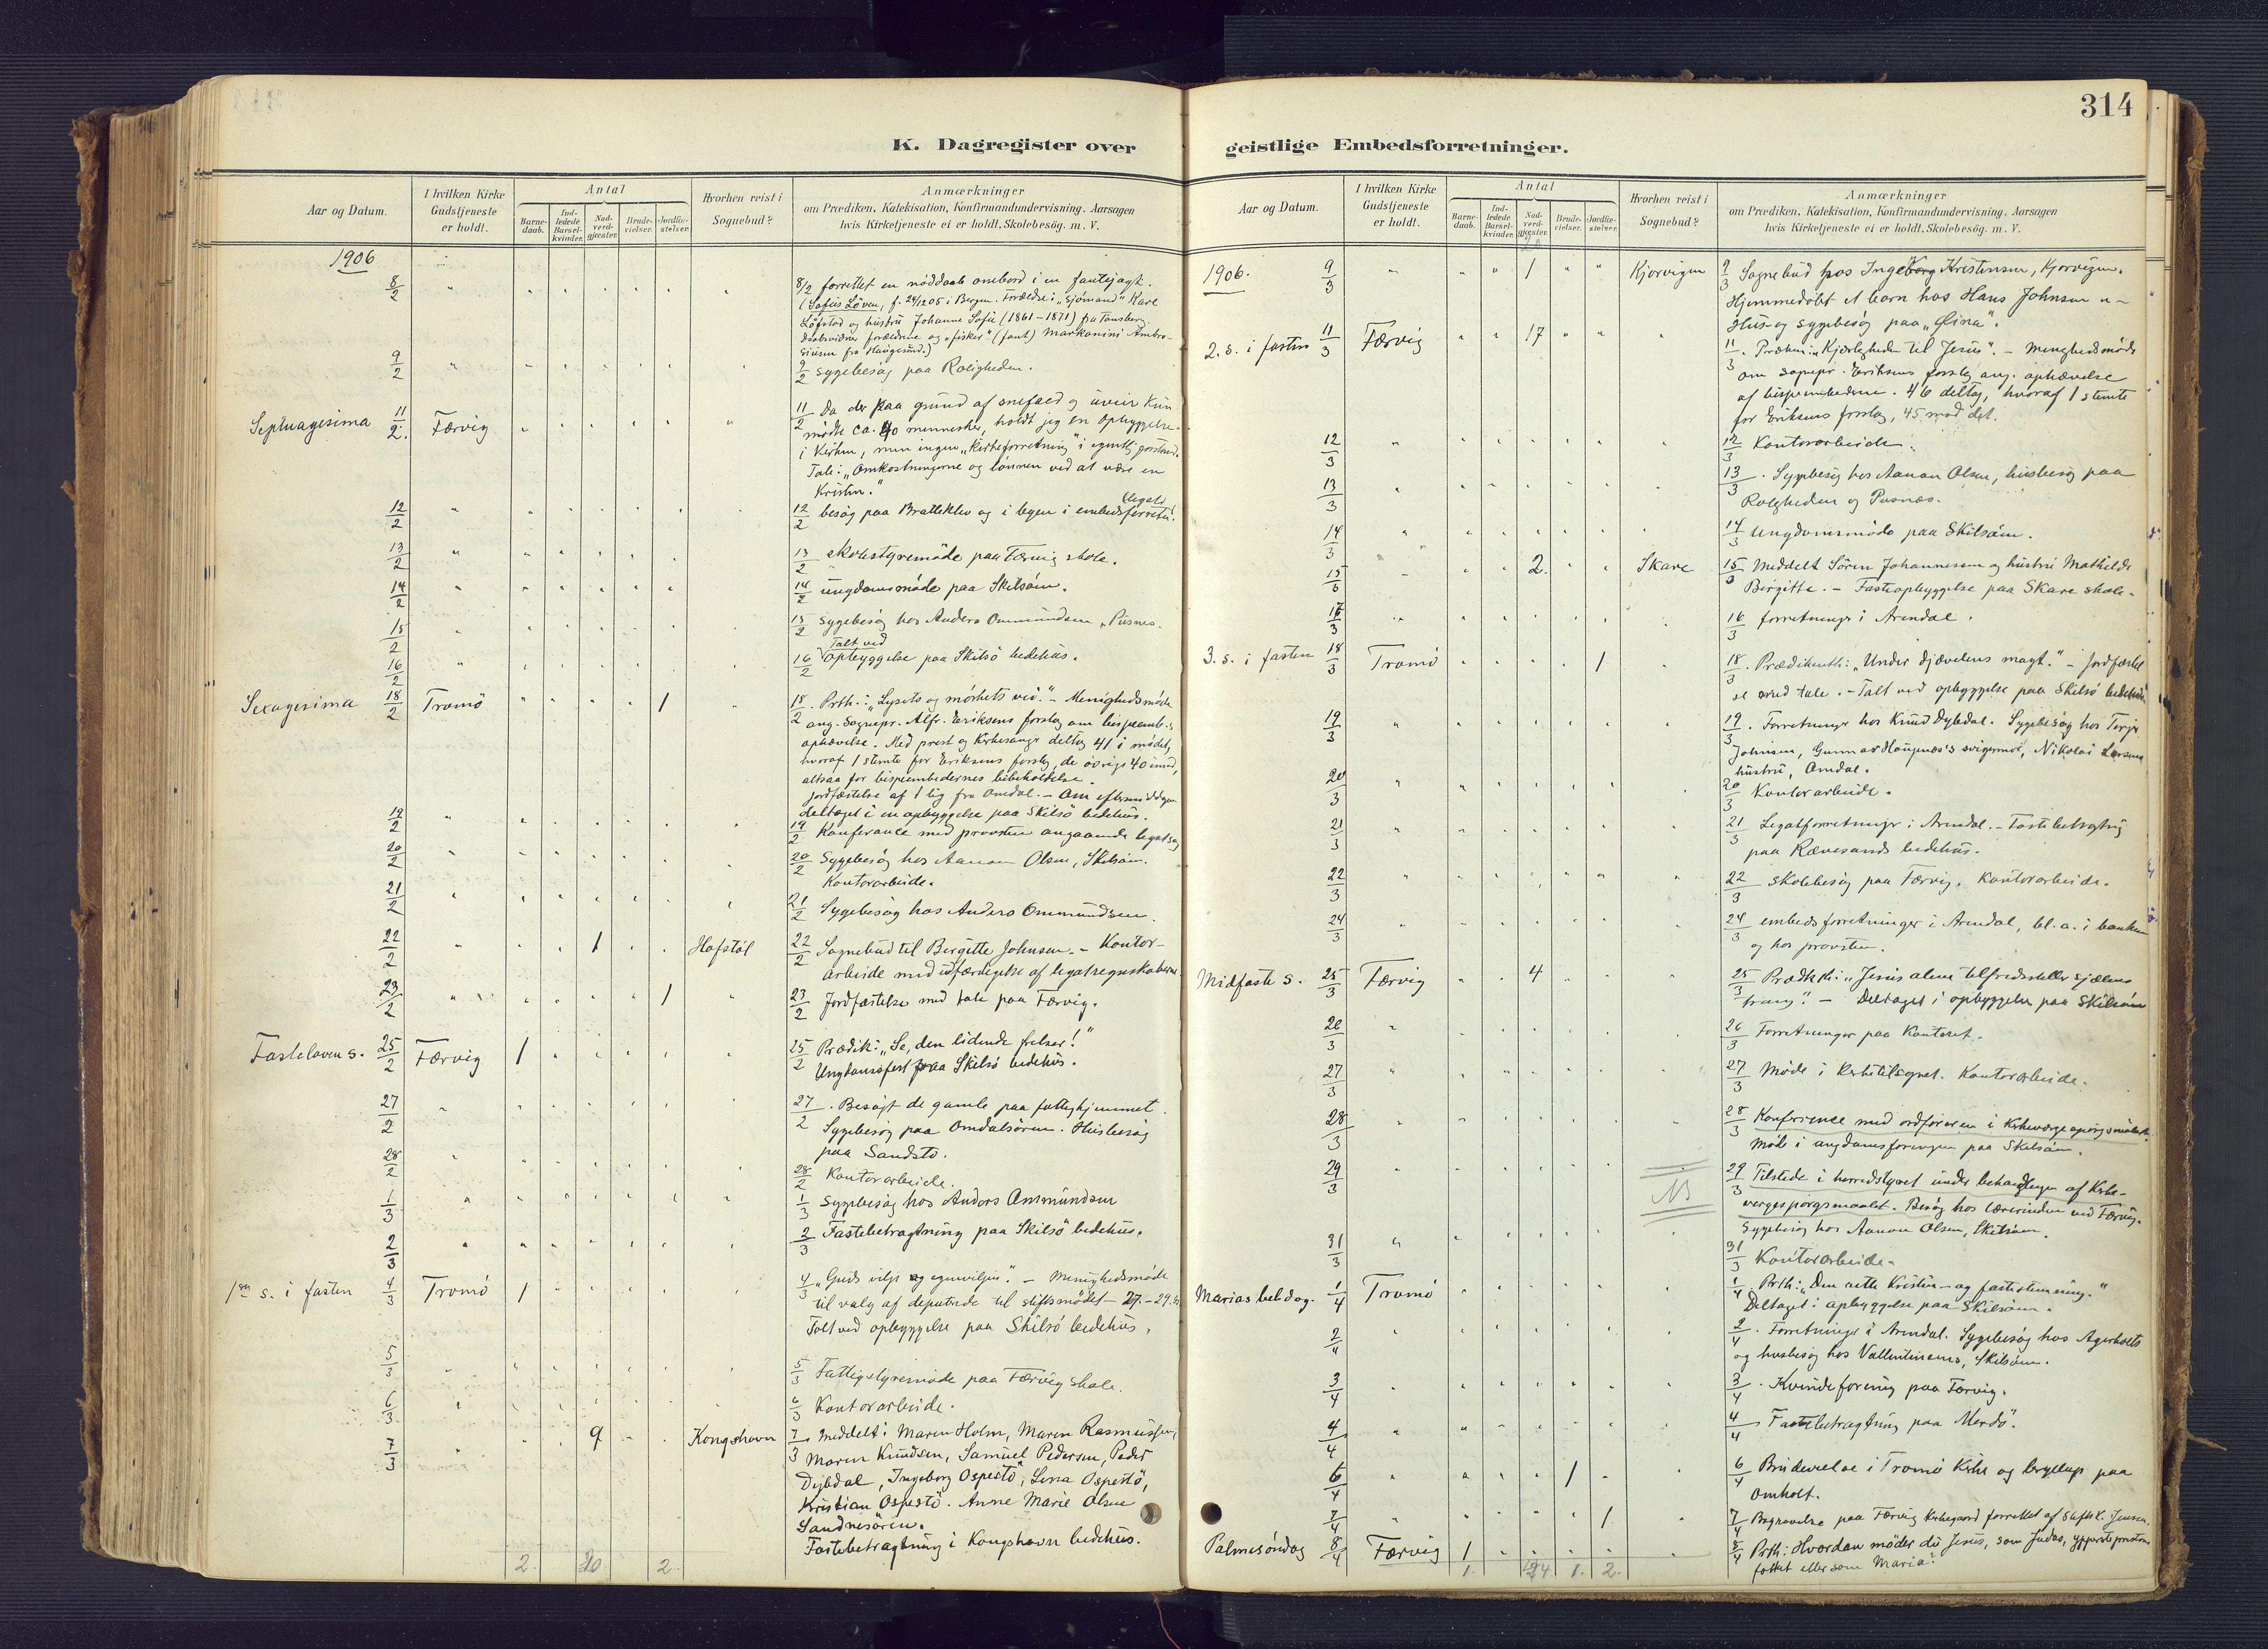 314
K. Dagregister over
geistlige Embedsforretninger.
Aar og Datum.
I hvilken Kirke
Gudstjeneste
er holdt.
Antal
Barne-
daab.
Ind-
ledede
Barsel-
kvinder.
Nad-
verd-
gjæster.
Brude-
vielser.
Jordfæ-
stelser.
Hvorhen reist i
Sognebud?
Anmærkninger
om Prædiken, Katekisation, Konfirmandundervisning, Aarsagen
hvis Kirketjeneste ei er holdt, Skolebesøg. m. V.
1906
8/2 forrettet en nøddaab ombord i en fantejagt.
(Sofus Löven, f. 24/12 05 i Bergen. Forældre: "Sjömand" Karl
Löfstad og hustru Johanne Sofie (1861-1871) fra Tønsberg.
Daabsvidner forældrene og "fisker" (fant) Markanini Ambro-
siusen fra Haugesund.)
9/2 Sygebesøg paa Roligheden.
Septuagesima 11/2 Færvig
11/2 Da der paa grund af snefald og uveir kun
mødte ca. 40 mennesker, holdt jeg en opbyggelse
i kirken, men ingen "kirkeforretning" i egentlig forstand.
Tale: "Omkostningerne og lønnen ved at være en
Kristen."
12/2 besøg paa Bratteklev og i byen i embedsforretn. (legat)
13/2 skolestyremøde paa Færvig skole.
14/2 ungdomsmøde paa Skilsøm.
15/2 Sygebesøg hos Anders Ommundsen, Pusnes.
16/2 Talt ved
opbyggelse paa Skilsø bedehus.
Sexagesima 18/2 Tromø 1
18/2 Prth.: "Lysets og mørkets vei." - Menighedsmøde
ang. Sognepr. Alfr. Eriksens forslag om bispeemb.s
ophævelse. Med prest og kirkesanger deltog 41 i mødet,
hvoraf 1 stemte for Eriksens forslag, de øvrige 40 imod,
altsaa for bispeembedernes bibeholdelse.
Jordfæstelse af 1 lig fra Omdal. - Om eftermiddagen
deltaget i en opbyggelse paa Skilsø bedehus.
19/2 Konferance med provsten angaaende legatsag
20/2 Sygebesøg hos Aanon Olsen, Skilsøm.
Kontorarbeide.
21/2 Sygebesøg hos Anders Ommundsen.
22/2 1 Hofstøl
22/2 Sognebud til Bergitte Johnsen. - Kontor-
arbeide med udfærdigelse af legatregnskaberne.
23/2 1
23/2 Jordfæstelse med tale paa Færvig.
Fastelavens s. 25/2 Færvig 1
25/2 Prædik: "Se, den lidende frelser!"
Ungdomsfest paa Skilsø bedehus.
27/2. Besøgt de gamle paa fattighjemmet.
Sygebesøg paa Omdalsøren. Husbesøg
paa Sandstø.
28/2 Kontorarbeide.
1/3 Sygebesøg hos Anders Ommundsen
2/3 Fastebetragtning paa Skilsø bedehus.
1ste s. i fasten 4/3 Tromø 1
4/3 "Guds vilje og egenviljen". - Menighedsmøde
til valg af deputerede til stiftsmødet 27.-29.
Talt ved opbyggelse paa Skilsø bedehus.
5/3 Fattigstyremøde paa Færvig skole.
6/3 Kontorarbeide.
7/3 9 Kongshavn
7/3 Meddelt: Maren Holm, Maren Rasmussen,
Maren Knudsen, Samuel Pedersen, Peder
Dybdal, Ingeborg Ospestø, Lina Ospestø,
Kristian Ospestø. Anne Marie Olsen
Sandnesøren.
Fastebetragtning i Kongshavn bedehus.
2. 2.
Aar og Datum.
I hvilken Kirke
Gudstjeneste
er holdt.
Antal
Barne-
daab.
Ind-
ledede
Barsel-
kvinder.
Nad-
verd-
gjæster.
Brude-
vielser.
Jordfæ-
stelser.
Hvorhen reist i
Sognebud?
Anmærkninger
om Prædiken, Katekisation, Konfirmandundervisning, Aarsagen
hvis Kirketjeneste ei er holdt, Skolebesøg. m. V.
1906. 9/3 1 Kjorvigen
9/3 Sognebud hos Ingeborg Kristensen, Kjorvigen.
Hjemmedøbt et barn hos Hans Johnsen
Hus- og sygebesøg paa "Gina".
2. s. i fasten 11/3 Færvig 17
11/3. Præken: "Kjærligheden til Jesus". - Menighedsmøde
om Sognepr. Eriksens forslag ang. ophævelse
af bispeembederne. 46 deltog, hvoraf 1 stemte
for Eriksens forslag, 45 mod det.
12/3 Kontorarbeide.
13/3. Sygebesøg hos Aanon Olsen, husbesøg paa
Roligheden og Pusnæs.
14/3 Ungdomsmøde paa Skilsøm.
15/3 2. Skare
15/3 Meddelt Søren Johannesen og hustru Mathilde
Birgitte. - Fasteopbyggelse paa Skare skole.
16/3 forretninger i Arendal.
3. s. i fasten 18/3 Tromø 1
18/3. Prædikenth.: "Under djævelens magt." - Jordfæstel
se med tale. - Talt ved opbyggelse paa Skilsø bedehus
19/3. Forretninger hos Knud Dybdal. Sygebesøg hos Terje
Johnsen, Gunnar Haugenæs's svigermor, Nikolai Larsens
hustru, Omdal.
20/3 Kontorarbeide.
21/3 Legatforretninger i Arendal. - Fastebetragtning
paa Rævesands bedehus.
22/3 skolebesøg paa Færvig. Kontorarbeide.
24/3 embedsforretninger i Arendal, bl. a. i banken
og hos provsten.
Midfaste s. 25/3 Færvig 4
25/3 Prædkth: "Jesus alene tilfredsstiller sjælens
trang". - Deltaget i opbyggelse paa Skilsøm
26/3 Forretninger paa Kontoret.
27/3 Møde i Kirketilsynet. Kontorarbeide.
28/3 Konference med ordføreren i Kirkevergespørgsmaalet.
Møde i ungdomsforeningen paa Skilsøm.
NB
29/3 Tilstede i herredstyret under behandlingen af Kirke-
vergespørgsmaalet. Besøg hos lærerinden ved Færvig.
Sygebesøg hos Aanon Olsen, Skilsøm.
31/3 Kontorarbeide.
Marias beb.dag. 1/4 Tromø
1/4 Prth: "Den rette Kristen- og fastestemning."
Deltaget i opbyggelse paa Skilsøm.
2/4. Forretninger i Arendal. Sygebesøg hos Agerholts
og husbesøg hos Vallentinsens, Skilsøm.
3/4. Kvindeforening paa Færvig.
4/4 Fastebetragtning paa Merdø.
6/4 1
6/4 Brudevielse i Tromø Kirke og bryllup paa
Omholt.
7/4 1
7/4 Begravelse paa Færvig Kirkegaard forrettet af stiftsk. Jensen.
Palmesøndag 8/4 Færvig 1
8/4 Prth: Hvordan møder du Jesus, som Judas, ypperstepresterne,
folket eller som Maria?
1. 24 1. 2.